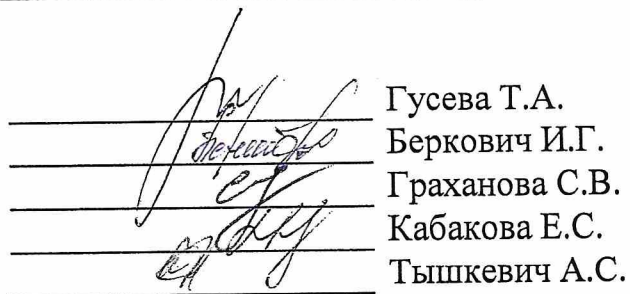 Гусева Т.А.
Беркович И.Г.
Граханова С.В.
Кабакова Е.С.
Тышкевич А.С.